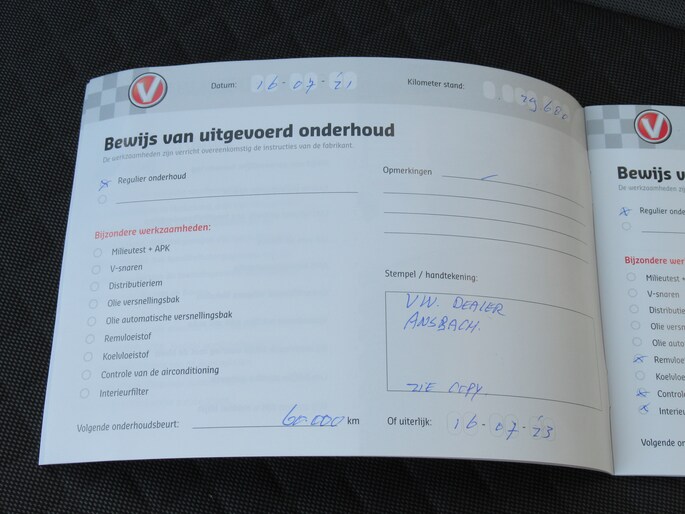 Datum: 16-07-'21
Kilometer stand: 29680
Bewijs van uitgevoerd onderhoud
De werkzaamheden zijn verricht overeenkomstig de instructies van de fabrikant.
Regulier onderhoud
Opmerkingen
Bijzondere werkzaamheden:
Milieutest + APK
V-snaren
Distributieriem
Olie versnellingsbak
Olie automatische versnellingsbak
Remvloeistof
Koelvloeistof
Controle van de airconditioning
Interieurfilter
Stempel / handtekening:
VW. DEALER
ANSBACH.
ZIE COPY.
Volgende onderhoudsbeurt: 60.000 km
Of uiterlijk: 16-07-'23
V
Bewijs v
De werkzaamheden zijn ve
Regulier onde
Bijzondere wer
Milieutest +
V-snaren
Distributie
Olie versn
Olie auto
Remvloe
Koelvloe
Control
Interieu
Volgende on